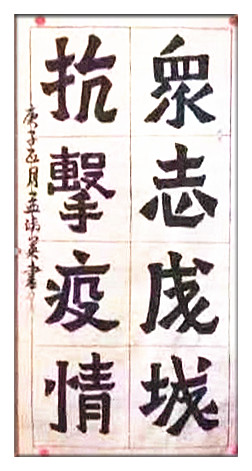 衆志成城
抗擊疫情
庚子正月孟瑞英書